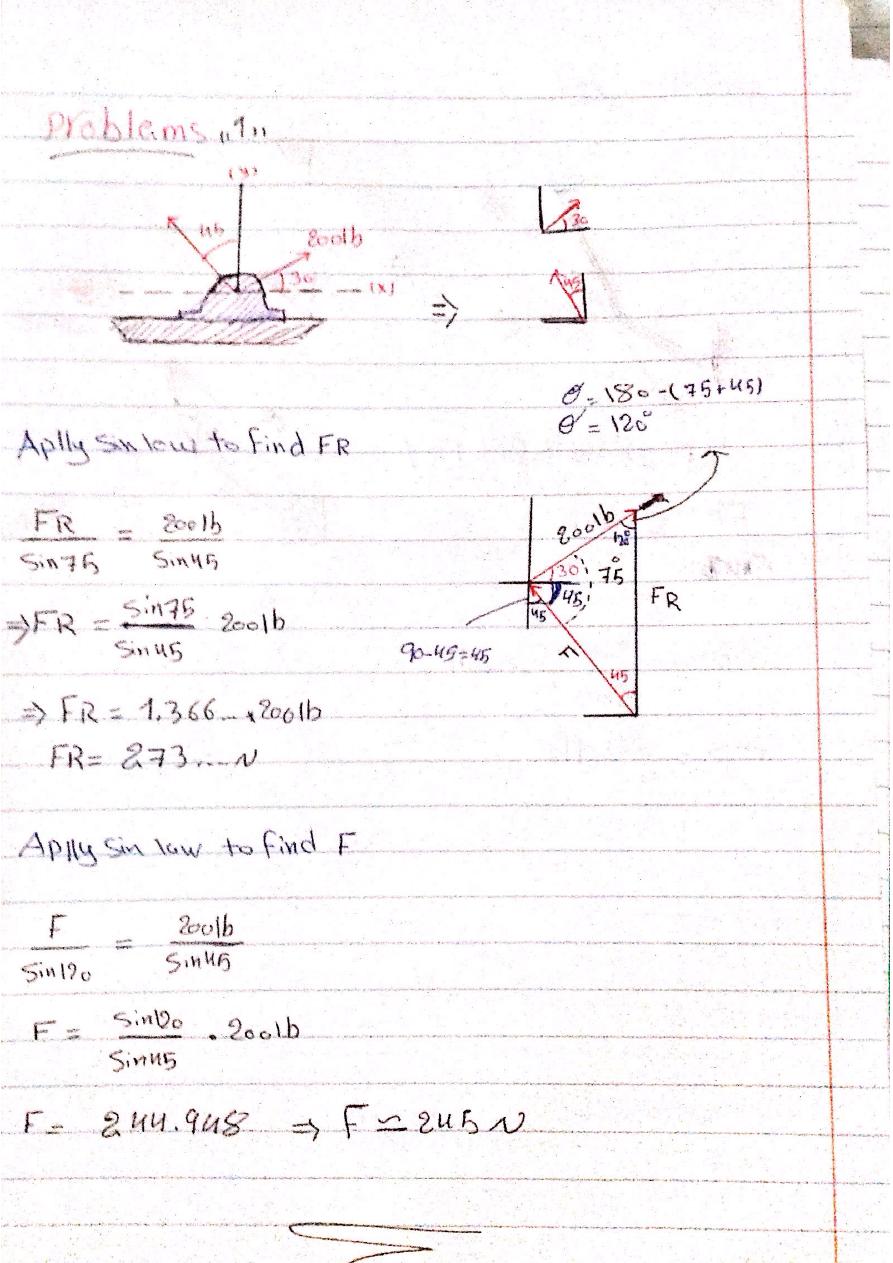 Problems "1"
(y)
45
200lb
30
(x)
⇒
30
45
θ = 180 - (75+45)
θ = 120°
Aplly sin low to find FR
FR / Sin75 = 200lb / Sin45
⇒ FR = Sin75 / Sin45 200lb
⇒ FR = 1.366... x 200lb
FR = 273.... N
200lb
120°
30
75°
45
45
FR
90-45=45
F
45
Aplly Sin law to find F
F / Sin120 = 200lb / Sin45
F = Sin120 / Sin45 . 200lb
F = 244.948 ⇒ F ≃ 245 N